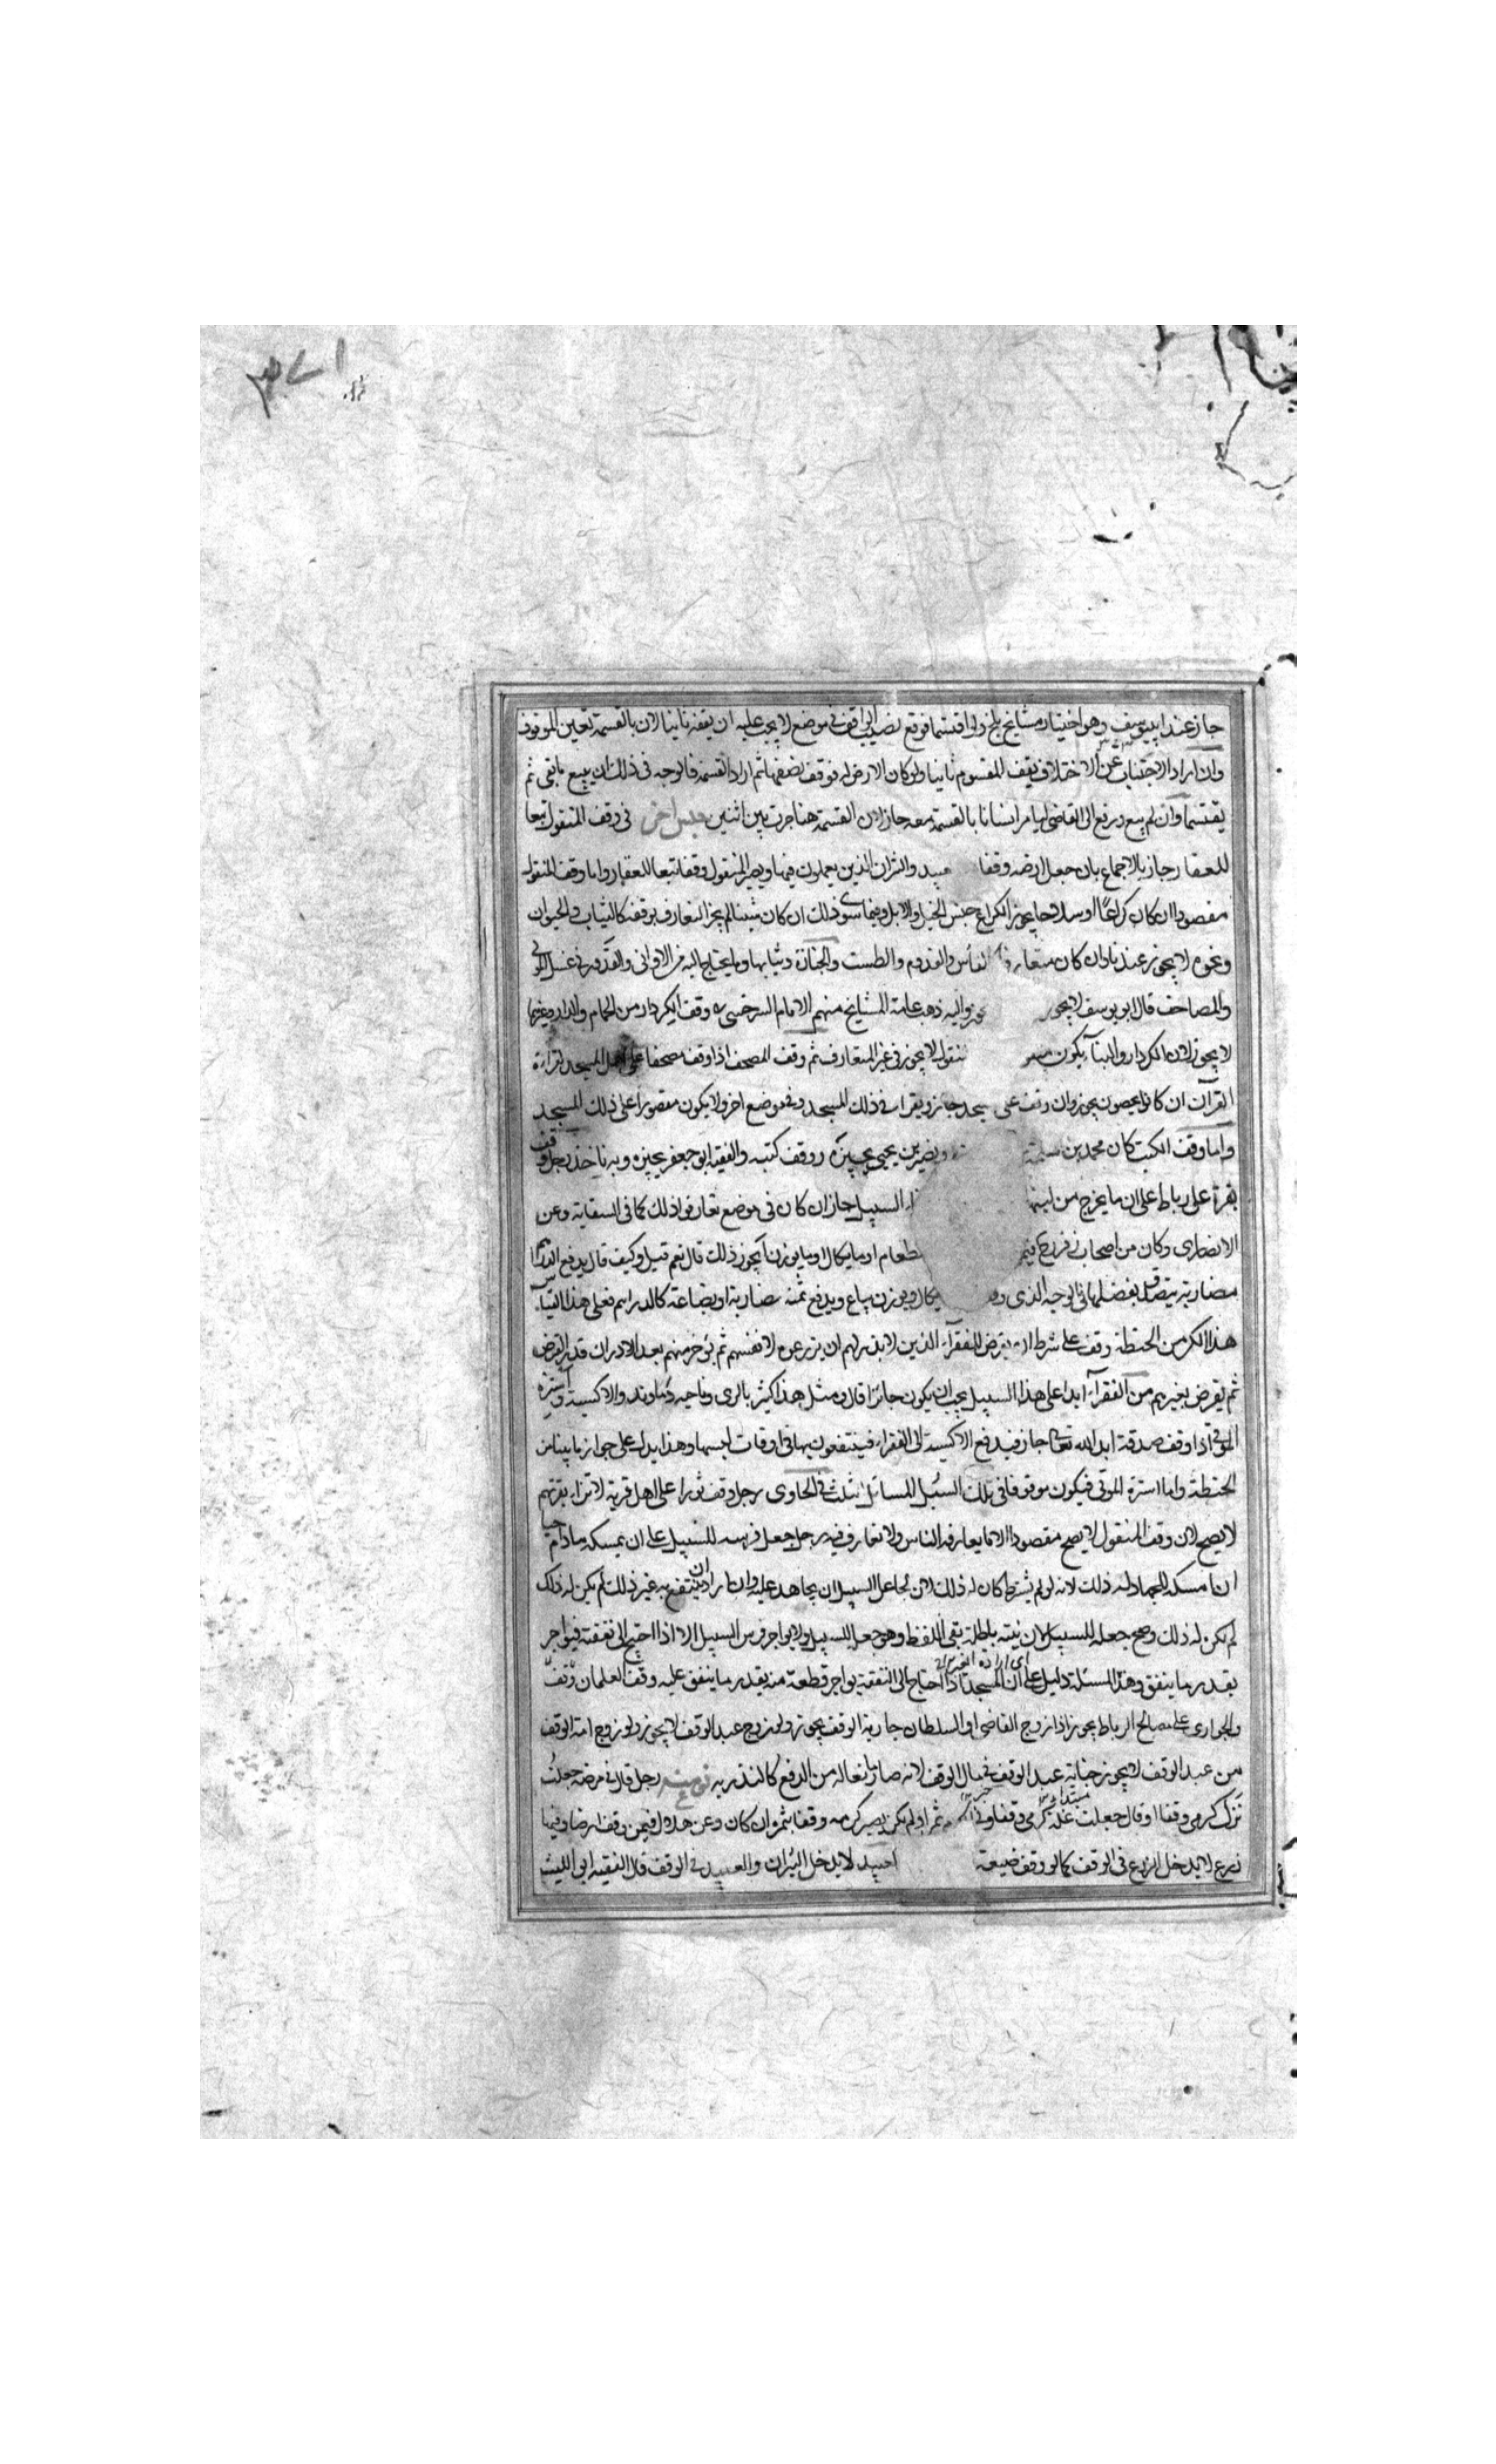 جاز عند ابي يوسف وهو اختيار مشايخ بلخ ولو اقتسما فوقع نصيب الواقف في موضع لا يجب عليه ان يقفه ثانيا لان بالقسمة تعين الموقوف
وان اراد الاجتناب عن الاختلاف يقف المقسوم ثانيا ولو كان الارض له فوقف نصفها ثم اراد القسمة فالوجه في ذلك ان يبيع ما بقي ثم
يقتسما وان لم يبع ورفع الى القاضي ليامر انسانا بالقسمة معه جاز لان القسمة هنا جرت بين اثنين جنس اخر في وقف المنقول تبعا
للعقار جاز بالاجماع بان جعل ارضه وقفا والثران الذين يعملون فيها ويصير المنقول وقفا تبعا للعقار واما وقف المنقول
مقصودا ان كان كراعا او سلاحا يجوز الكراع جنس الخيل والابل وفيما سوى ذلك ان كان شيئا لم يجز التعارف بوقفه كالثياب والحيوان
ونحوه لا يجوز عندنا وان كان متعارفا كالفأس والقدوم والطست والجنازة وثيابها وما يحتاج اليه من الاواني والقدور في غسل الموتى
والمصاحف قال ابو يوسف لا يجوز واليه ذهب عامة المشايخ منهم الامام السرخسي وقف الكردار من الحمام والدار وغيرها
لا يجوز لان الكردار والبناء يكون لا يجوز في غير المتعارف ثم وقف المصحف اذا وقف مصحفا على اهل المسجد لقراءة
القرآن ان كانوا يحصون يجوز وان وقف على جاز ويقرا في ذلك المسجد وفي موضع اخر ولا يكون مقصورا على ذلك المسجد
واما وقف الكتب كان محمد بن ونصير بن يحيى يجيزه ووقف كتبه والفقيه ابو جعفر يجيزه وبه ناخذ رجل وقف
بقرة على رباط على ان ما يخرج من لبنها السبيل جاز ان كان في موضع تعارفوا ذلك كما في السقاية وعن
الانصاري وكان من اصحاب زفر طعام او ما يكال او ما يوزن أيجوز ذلك قال نعم قيل وكيف قال يدفع الدراهم
مضاربة يتصدق بفضلها في الوجه الذي ويوزن يباع ويدفع ثمنه مضاربة او بضاعة كالدراهم فعلى هذا القياس
هذا الكر من الحنطة وقف على شرط ان يقرض للفقراء الذين لا بذر لهم ان يزرعوه لانفسهم ثم يؤخذ منهم بعد الادراك قدر القرض
ثم يقرض بغيرهم من الفقراء ابدا على هذا السبيل يجب ان يكون جائزا قال ومثل هذا كثير بالري وناحية دنباوند والاكسية واسترة
الموتى اذا وقف صدقة ابدا لله تعالى جاز فيدفع الاكسية الى الفقراء فينتفعون بها في اوقات لبسها وهذا يدل على جواز ما بينا من
الحنطة واما استرة الموتى فيكون موقوفا في تلك السبيل المسائل ثلث في الحاوي رجل وقف ثورا على اهل قرية لانزاء بقرتهم
لا يصح لان وقف المنقول لا يصح مقصودا الا ما يعارفه الناس ولا تعارف فيه رجل جعل فرسه للسبيل على ان يمسكه ما دام حيا
ان امسكه للجهاد له ذلك لانه لو لم يشترط كان له ذلك لان لجاعل السبيل ان يجاهد عليه وان اراد ان ينتفع به غير ذلك لم يكن له ذلك
لم يكن له ذلك وصح جعله للسبيل لان نيته باطلة بقي اللفظ وهو جعل للسبيل ولا يواجر فرس السبيل الا اذا احتيج الى نفقته فيواجر
بقدر ما ينفق وهذا المسئلة دليل على ان المسجد اذا احتاج الى النفقة يواجر قطعة منه بقدر ما ينفق عليه وقف الغلمان
والجواري على مصالح الرباط يجوز اذا زوج القاضي او السلطان جارية الوقف يجوز ولو زوج عبد الوقف لا يجوز ولو زوج امة الوقف
من عبد الوقف لا يجوز جناية عبد الوقف في مال الوقف لانه صار مانعا له من الدفع كالمدبر رجل قال في مرضه جعلت
نزل كرمي وقفا او قال جعلت غلة كرمي وقفا وفيه ثمر او لم يكن يصير كرمه وقفا بثمره ان كان وعن هلال فيمن وقف ارضا وفيها
زرع لا يدخل الزرع في الوقف كما لو وقف ضيعة لا يدخل الثيران والعبيد في الوقف قال الفقيه ابو الليث